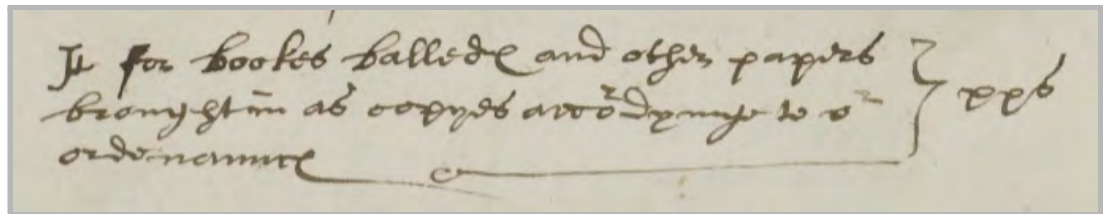 It for bookes balledes and other papers
brought in as copyes accordynge to or
ordenaunces
xxs